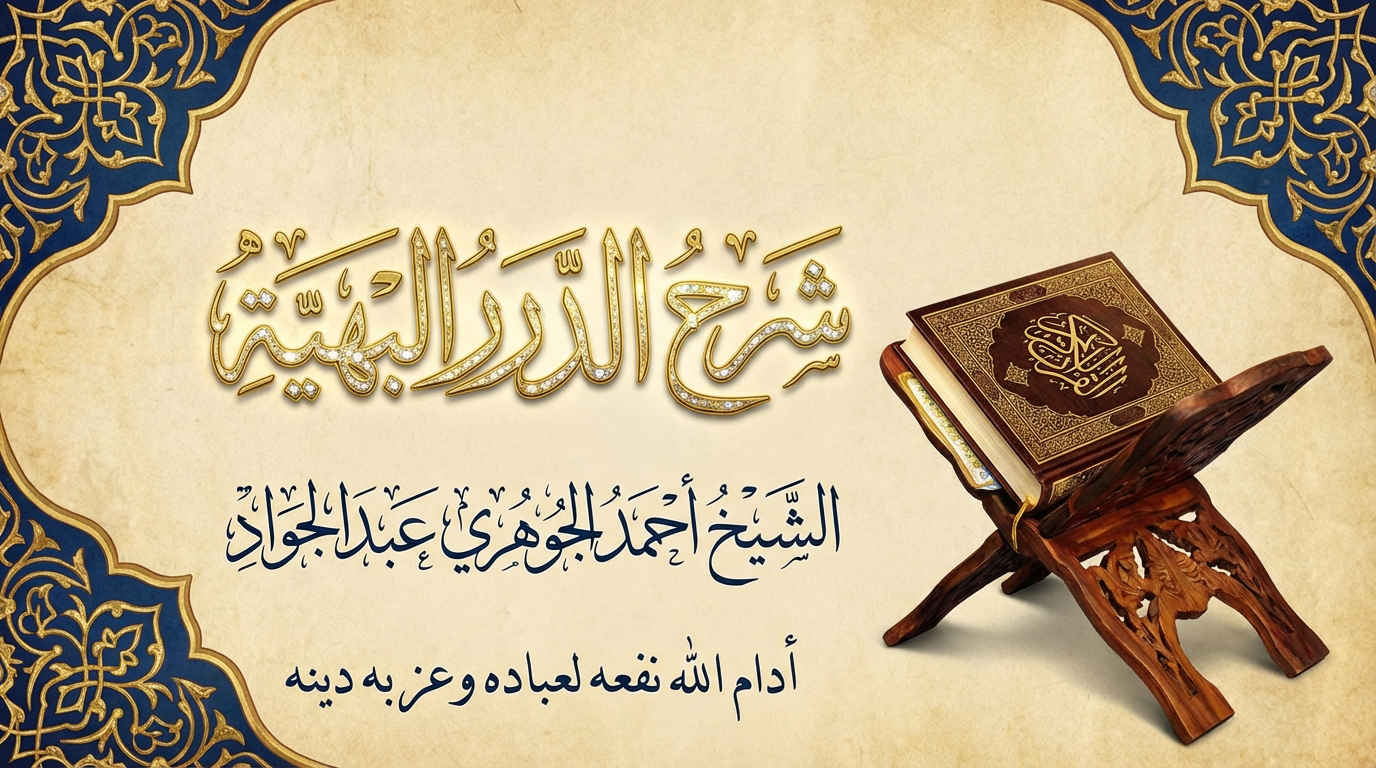 شرح الدرر البهية
الشيخ أحمد الجوهري عبد الجواد
أدام الله نفعه لعباده وعز به دينه
القرآن الكريم